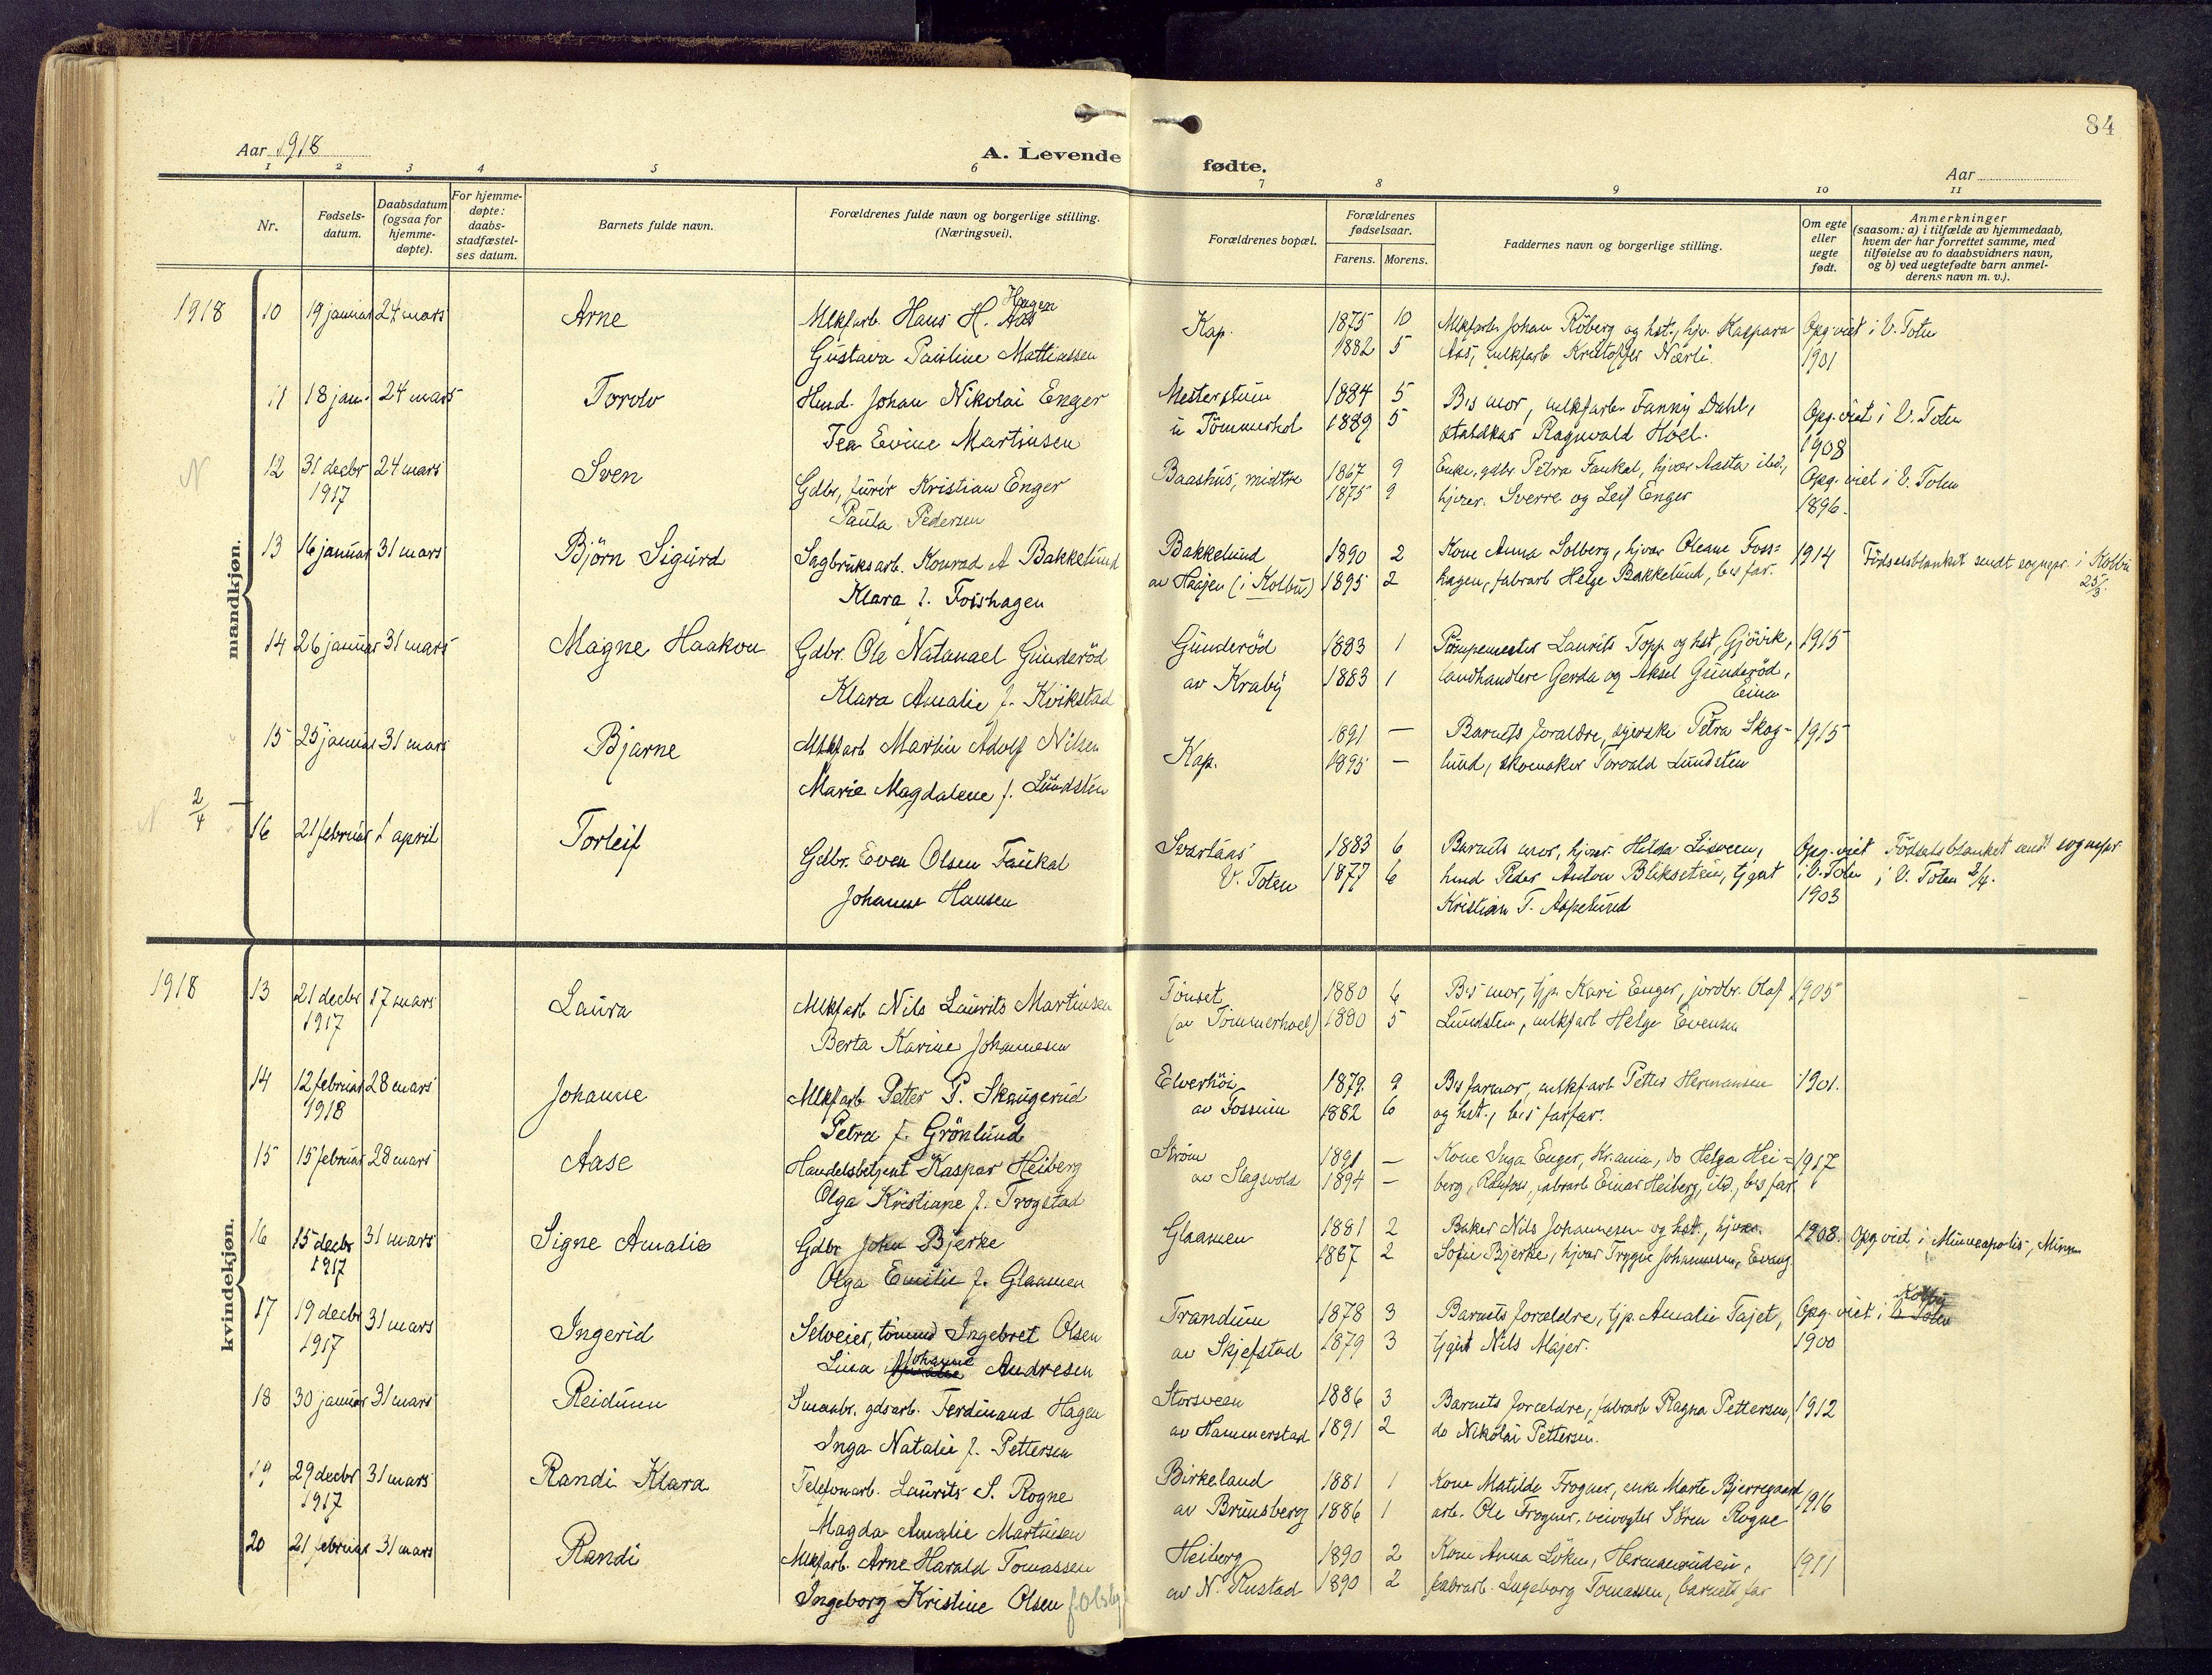 84
Aar 1918
A. Levende fødte.
Aar
1 2 3 4 5 6 7 8 9 10 11
Nr.
Fødsels-datum.
Daabsdatum (ogsaa for hjemme-døpte).
For hjemme-døpte: daabs-stadfæstel-ses datum.
Barnets fulde navn.
Forældrenes fulde navn og borgerlige stilling. (Næringsvei).
Forældrenes bopæl.
Forældrenes fødselsaar.
Farens. Morens.
Faddernes navn og borgerlige stilling.
Om egte eller uegte født.
Anmerkninger (saasom: a) i tilfælde av hjemmedaab, hvem der har forrettet samme, med tilføielse av to daabsvidners navn, og b) ved uegtefødte barn anmel-derens navn m. v.).
mandkjøn.
1918 10 19 januar 24 mars Arne Mlkfarb. Hans H. Hagen Kap. 1875 10 Mlkfarb. Johan Röberg og hst., hjv. Kaspara Opg. viet i V. Toten
Gustava Pauline Mattiassen 1882 5 Aas, mlkfarb Kristoffer Nærli. 1901
11 18 jan. 24 mars Tordv Husd. Johan Nikolai Enger Mesterstuen 1884 5 B's mor, mlkfarb. Fanny Dahl, Opg. viet i V. Toten
Tea Evine Martinsen u Tömmerhol 1889 5 staldkar Ragnvald Hoel. 1908
N 12 31 decbr 1917 24 mars Sven Gdbr, furér Kristian Enger Baashus, midtre 1867 9 Enke, gdbr. Petra Faukal, hjvær Aasta ibd, Opg. viet i V. Toten
Paula Pedersen 1875 9 hjvær. Sverre og Leif Enger 1896.
13 16 januar 31 mars Björn Sigurd Sagbruksarb. Konrad A Bakkelund Bakkelund 1890 2 Kone Anna Solberg, hjvær Oleane Foss- 1914 Födselsblanket sendt sognepr. i Kolbu 25/3.
Klara f. Fosshagen av Haagen (i Kolbu) 1895 2 hagen, fabrarb Helge Bakkelund, b's far.
14 26 januar 31 mars Magne Haakon Gdbr. Ole Natanael Gunderöd Gunderöd 1883 1 Pumpemester Laurits Topp og hst, Gjövik, 1915
Klara Amalie f. Kvikstad av Kraby 1883 1 landhandlere Gerda og Aksel Gunderöd, Eina
15 25 januar 31 mars Bjarne Mlkfarb Martin Adolf Nilsen Kap. 1891 — Barnets foræ​ldre, syerske Petra Skog- 1915
Marie Magdalene f. Lundsten 1895 — lund, skomaker Torvald Lundsten
N 2/4
16 21 februar 1 april Torleif Gdbr. Even Olsen Faukal Svartaas 1883 6 Barnets mor, hjvær. Hilda Lisveen, Opg. viet Födselsblanket sendt sognepr.
Johanne Hansen V. Toten 1877 6 husd Peder Anton Blikseteie, tjgut i V. Toten i V. Toten 2/4.
Kristian T. Aspelund 1903
kvindekjøn.
1918 13 21 decbr 1917 17 mars Laura Mlkfarb Nils Laurits Martinsen Tönset 1880 6 B's mor, tjp. Kari Enger, jordbr. Olaf 1905
Berta Karine Johannesen (av Tömmerhoel) 1880 5 Lundsten, mlkfarb Helge Evensen
14 12 februar 1918 28 mars Johanne Mlkfarb Petter P. Skaugerud Elverhöi 1879 9 B's farmor, mlkfarb Petter Hermansen 1901.
Petra f. Grönlund av Fossum 1882 6 og hst., b's farfar.
15 15 februar 28 mars Aase Handelsbetjent Kaspar Heiberg Ström 1891 — Kone Inga Enger, Kr.ania, do Helga Hei- 1917
Olga Kristiane f. Trogstad av Slagsvold 1894 — berg, Raufoss, fabrarb Einar Heiberg, ibd., b's far
16 15 decbr 1917 31 mars Signe Amalie Gdbr John Bjerke Glaamen 1881 2 Baker Nils Johannesen og hst., hjvær. 1908. Opg viet i Minneapolis, Minn
Olga Emilie f. Glaamen 1887 2 Sofie Bjerke, hjvær Trygve Johannesen, Evang.
17 19 decbr 1917 31 mars Ingerid Selveier, tömmd Ingebret Olsen Trandum 1878 3 Barnets forældre, tjp. Amalie Fajet, Opg. viet i Kolbu
Lina Johanne Andresen av Skjefstad 1879 3 tjgut Nils Majer. 1900
18 30 januar 31 mars Reidunn Smaabr. gdsarb. Ferdinand Hagen Storsveen 1886 3 Barnets forældre, fabrarb Ragna Pettersen, 1912
Inga Natalie f. Pettersen av Hammerstad 1891 2 do Nikolai Pettersen.
19 29 decbr 1917 31 mars Randi Klara Telefonarb. Laurits S. Rogne Birkeland 1881 1 Kone Matilde Frogner, enke Marte Bjerregaard 1916
Magda Amalie Martinsen av Brunsberg 1886 1 arb. Ole Frogner, veivogter Sören Rogne
20 21 februar 31 mars Randi Mlkfarb. Arne Harald Tomassen Heiberg 1890 2 Kone Anna Löken, Hermanruden, 1911
Ingeborg Kristine Olsen f. Olsby av N. Rustad 1890 2 fabrarb. Ingeborg Tomassen, barnets far